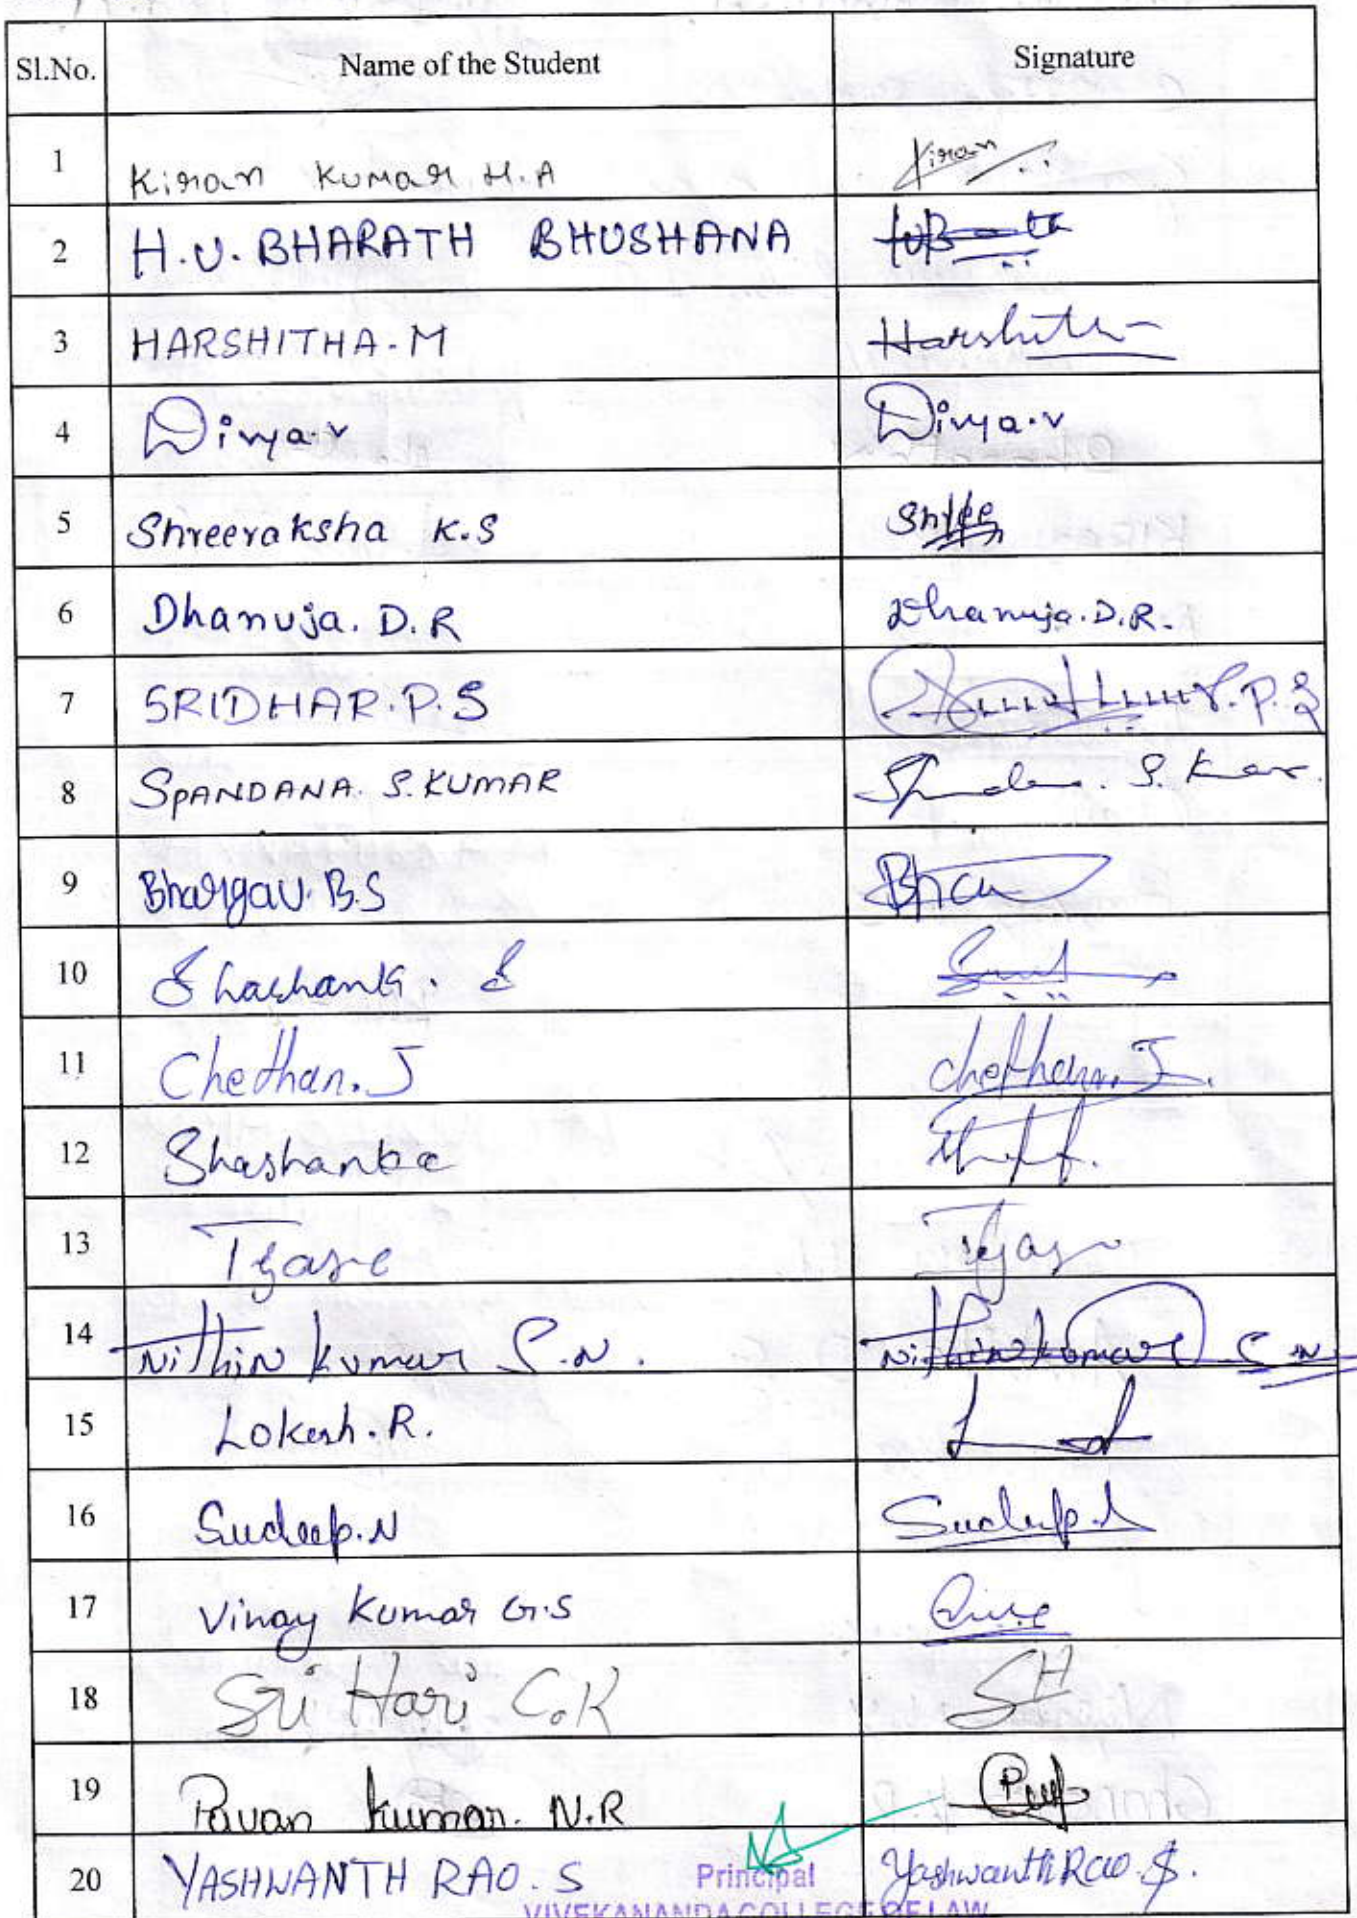 Sl.No. Name of the Student Signature
1 Kiran Kumar H.A Kiran
2 H.U. BHARATH BHUSHANA
3 HARSHITHA-M Harshitha
4 Divya.v Divya.v
5 Shreeraksha K.S Shree
6 Dhanuja. D.R Dhanuja.D.R.
7 SRIDHAR.P.S P.S
8 SPANDANA. S.KUMAR S. Kumar.
9 Bhargav. B.S
10 Shashank. S
11 Chethan. J Chethan. J.
12 Shashanka
13 Tejas
14 Nithin kumar S.N. Nithin kumar S.N.
15 Lokesh. R.
16 Sudeep.N Sudeep.N
17 Vinay Kumar G.S
18 Sri Hari C.K SH
19 Pavan kumar. N.R
20 YASHWANTH RAO. S Yashwanth Rao. S.
Principal
VIVEKANANDA COLLEGE OF LAW